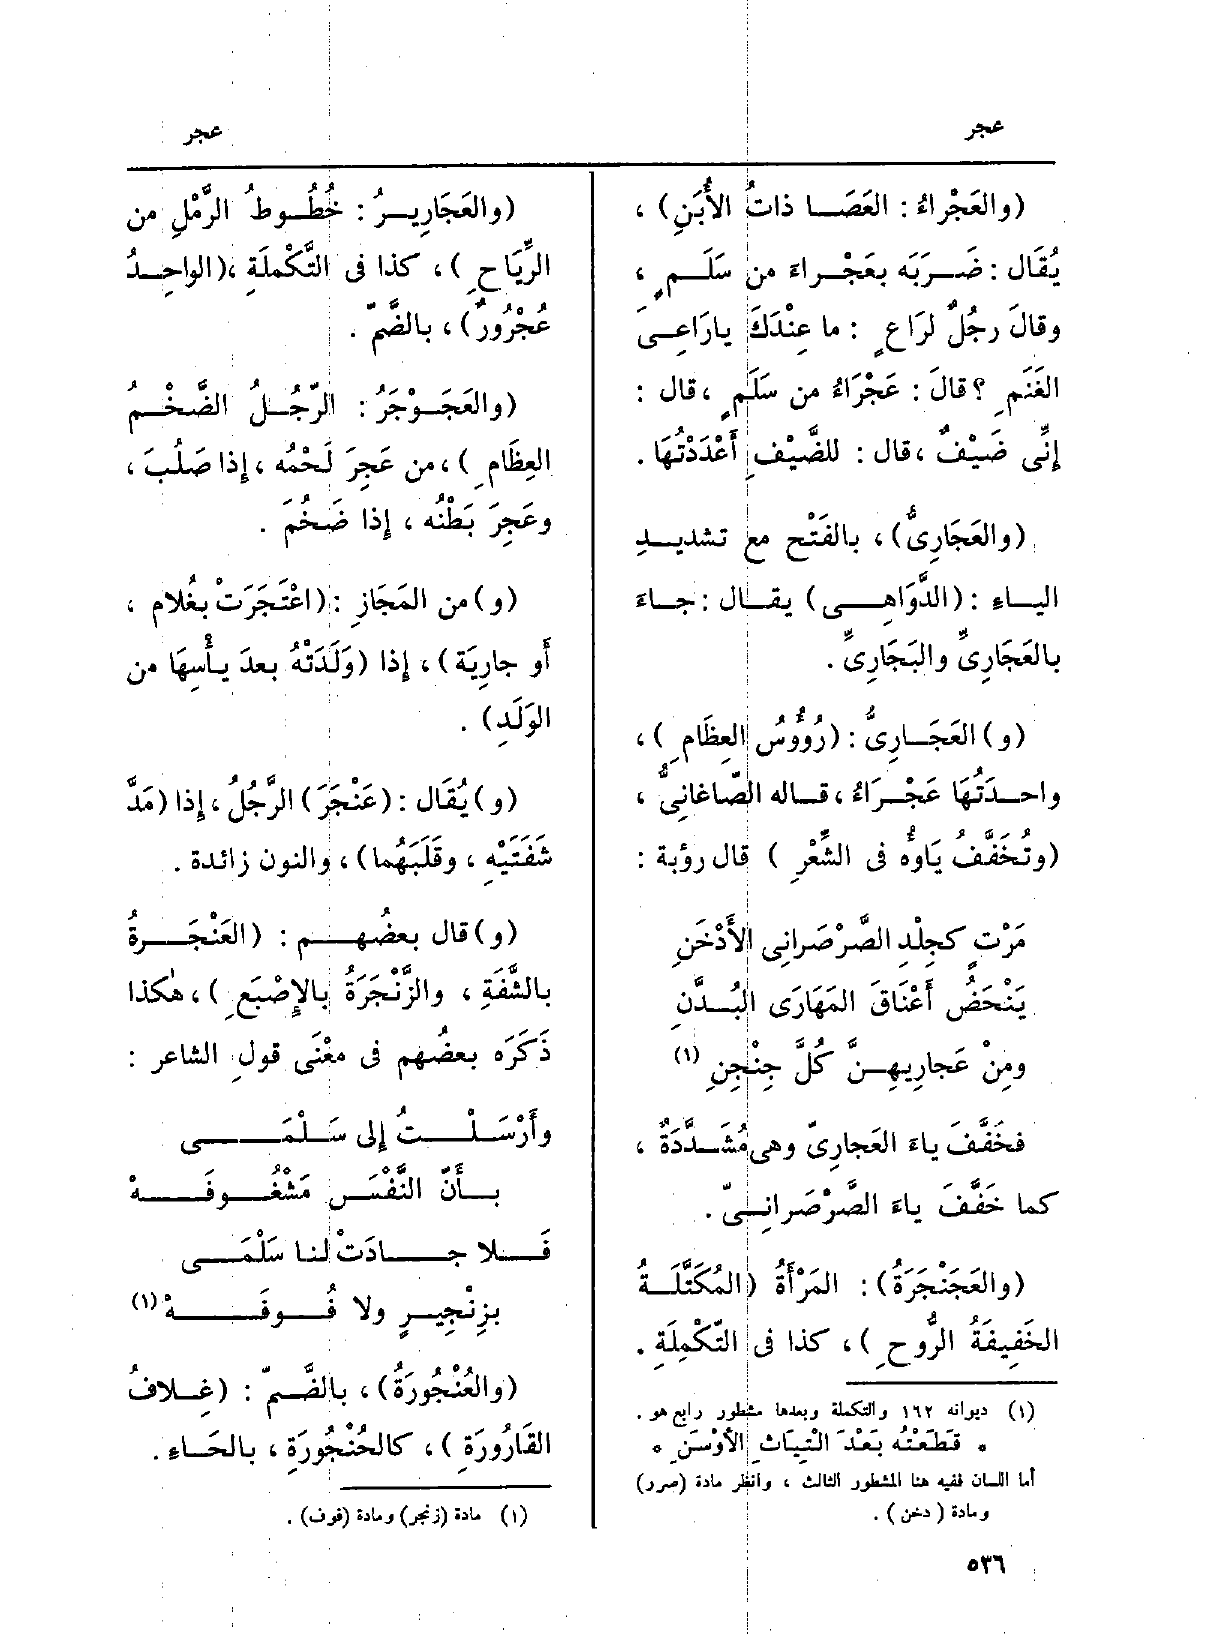 عجر
عجر
(والعَجْراءُ : العَصَـا ذاتُ الأُبَنِ) ،
يُقَال : ضَـرَبَه بعَجْـراءَ من سَلَـمٍ ،
وقالَ رجُلٌ لرَاعٍ : ما عِنْدَكَ يارَاعِـىَ
الغَنَمِ ؟ قالَ : عَجْرَاءُ من سَلَمٍ ، قال :
إنِّى ضَيْفٌ ، قال : للضَّيْفِ أَعْدَدْتُهَا .
(والعَجَارِىُّ) ، بالفَتْح مع تشديـدِ
اليـاءِ : (الدَّوَاهِـى) يقـال : جـاءَ
بالعَجَارِىِّ والبَجَارِىِّ .
(و) العَجَـارِىُّ : (رُؤُوسُ العِظَامِ ) ،
واحـدَتُهَا عَجْـرَاءُ ، قـاله الصّاغانِىُّ ،
(وتُخَفَّفُ يَاؤُه فى الشِّعْرِ ) قال رؤبة :
مَرْتٍ كجِلْدِ الصَّرْصَرانِى الأَدْخَنِ
يَنْحَضُ أَعْنَاقَ المَهَارَى البُـدَّنِ
ومِنْ عَجارِيهِـنَّ كُلَّ جِنْجِنِ (١)
فخَفَّفَ ياءَ العَجارِىّ وهى مُشَـدَّدَةٌ ،
كما خَفَّفَ ياءَ الصَّرْصَرانِـىّ .
(والعَجَنْجَرَةُ) : المَرْأَةُ (المُكَتَّلَـةُ
الخَفِيفَةُ الرُّوحِ ) ، كذا فى التَّكْمِلَةِ .
(١) ديوانه ١٦٢ والتكملة وبعدها مشطور رابع هو .
* قَطَعْتُه بَعْدَ التياثِ الأَوْسَنِ *
أما اللسان ففيه هنا المشطور الثالث ، وانظر مادة (صرر)
ومادة (دخن) .
(والعَجَارِيـرُ : خُطُـوطُ الرَّمْلِ من
الرِّيَاحِ ) ، كذا فى التَّكْملَةِ ، (الواحِـدُ
عُجْرُورٌ) ، بالضَّمّ .
(والعَجَـوْجَرُ : الرّجُـلُ الضَّخْـمُ
العِظَامِ ) ، من عَجِرَ لَحْمُه ، إذا صَلُبَ ،
وعَجِرَ بَطْنُه ، إذا ضَخُمَ .
(و) من المَجَازِ : (اعْتَجَرَتْ بغُلامٍ ،
أو جارِيَة) ، إذا (وَلَدَتْهُ بعدَ يأْسِهَا من
الوَلَدِ) .
(و) يُقَال : (عَنْجَرَ) الرَّجُلُ ، إذا (مَدَّ
شَفَتَيْهِ ، وقَلَبَهُما) ، والنون زائدة .
(و) قال بعضُهـم : (العَنْجَـرةُ
بالشَّفَةِ ، والزَّنْجَرَةُ بالإِصْبَعِ ) ، هٰكذا
ذَكَرَه بعضُهم فى مَعْنَى قولِ الشاعر :
وأَرْسَـلْـتُ إلى سَـلْمَـى
بـأَنّ النَّفْسَ مَشْغُـوفَـهْ
فَـلا جـادَتْ لنـا سَلْمَـى
بزِنْجِيـرٍ ولا فُـوفَـهْ (١)
(والعُنْجُورَةُ) ، بالضَّـمّ : (غِـلافُ
القَارُورَةِ ) ، كالحُنْجُورَةِ ، بالحَـاءِ .
(١) مادة (زنجر) ومادة (فوف) .
٥٣٦